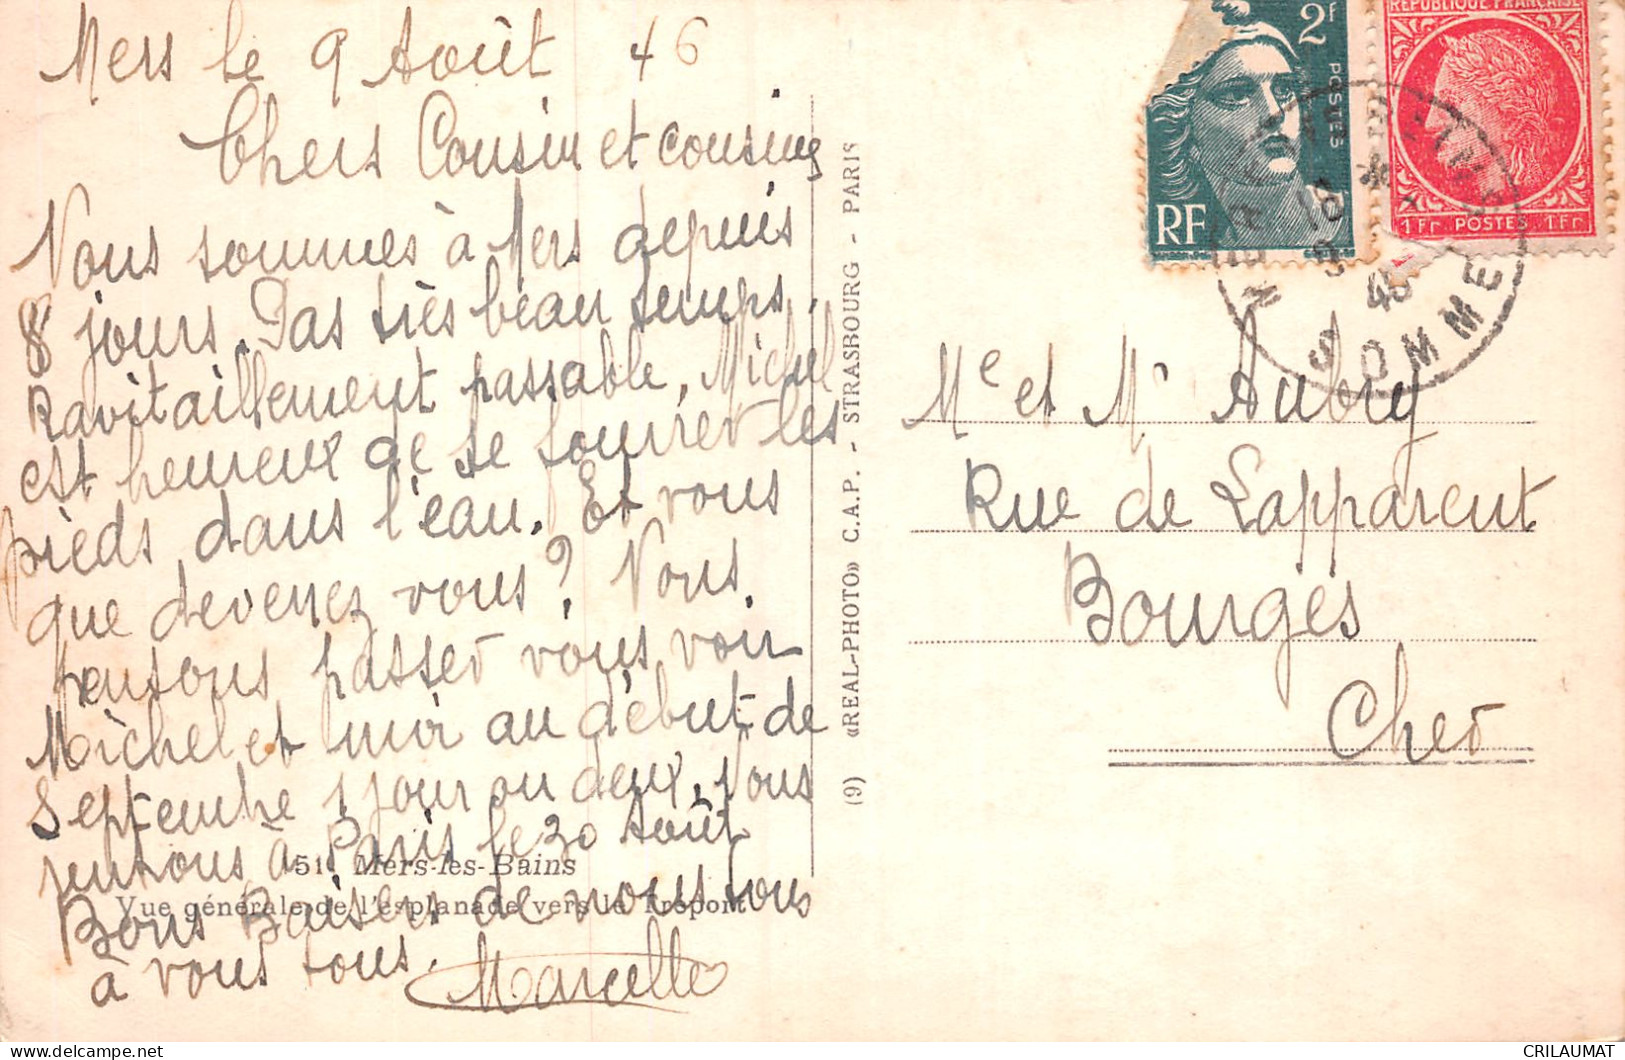 Mers le 9 Août 46
Chers Cousin et cousines
Nous sommes à Mers depuis
8 jours. Pas très beau temps.
Ravitaillement passable, Michel
est heureux de se fourrer les
pieds dans l'eau. Et vous
que devenez vous? Nous
pensons passer vous voir
Michel et moi au début de
Septembre 1 jour ou deux. Nous
rentrons à Paris le 30 Août
Bons Baisers de nous tous
à vous tous.
Marcelle
51. Mers-les-Bains
Vue générale de l'esplanade vers le Tréport
(9) «REAL-PHOTO» C.A.P. - STRASBOURG - PARIS
2F
POSTES
RF
REPUBLIQUE FRANÇAISE
1Fr POSTES 1Fr
SOMME
Me et Mr Aubry
Rue de Lapparent
Bourges
Cher
CRILAUMAT